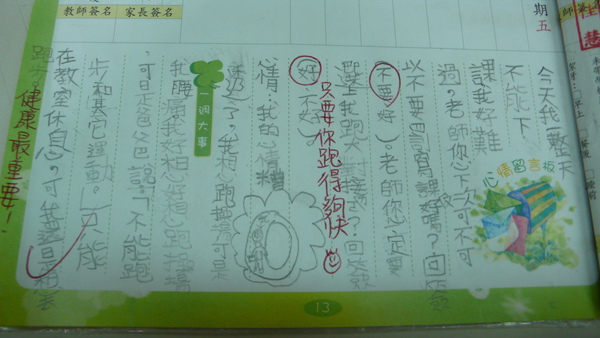 教師簽名
家長簽名
期五
師
心情留言板
今天我整天
不能下
課我好難
過。老師你下次可不可
以不要
嗎?回答
(不要 好)。老師您一定要
選我跑大
?回答
(好 不好)。
只要你跑得夠快
心情:我的心情糟
透了?我想跑操場可是
一週大事
我腰痛我好想
好想跑操場
可是爸爸說:「不能跑
步和其它運動。」只能
在教室休息。可我還是想去
跑步。
健康最重要!
13